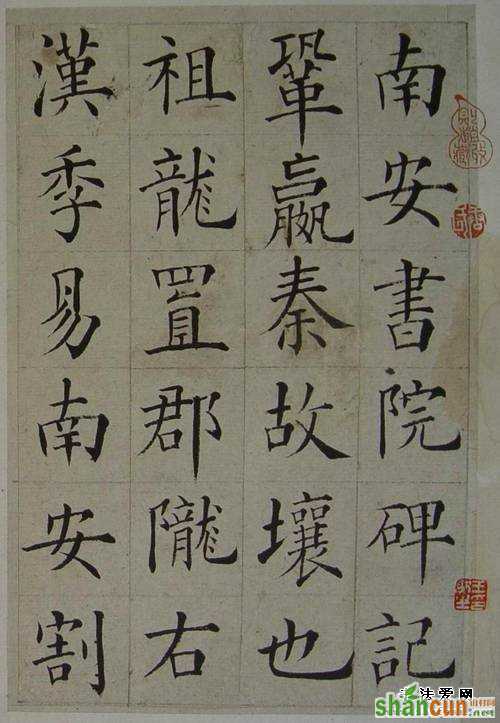 南安書院碑記
鞏嬴秦故壤也
祖龍置郡隴右
漢季易南安割
法爱网
shancun